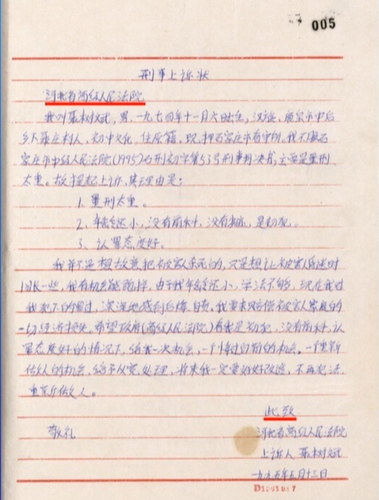 005
刑事上诉状
河北省高级人民法院
我叫聂树斌，男，一九七四年十一月六日生，汉族，
乡下聂庄村人，初中文化，住原籍，现押石家庄市看守所，我不服石
家庄市中级人民法院(1995)石刑初字第53号刑事判决书，主要是量刑
太重。故提起上诉，其理由是：
1、量刑太重。
2、年龄还小，没有前科，没有劣迹，是初犯。
3、认罪态度好。
我并不是想故意把被害人杀死的，只是想让被害人昏迷时
间长一些，我有机会能跑掉，由于我年龄还小，学法不够，现在我对
我犯下的罪过，深深地感到后悔，自责。我要求赔偿被害人家庭的
一切经济损失，希望政府(高级人民法院)看我是初犯，没有前科，认
罪态度好的情况下，给我一次机会，一个悔过自新的机会。一个重新
做人的机会，给予从宽处理，将来我一定要好好改造，不再犯法，
重新做人。
此致
敬礼
河北省高级人民法院
上诉人 聂树斌
一九九五年三月十三日